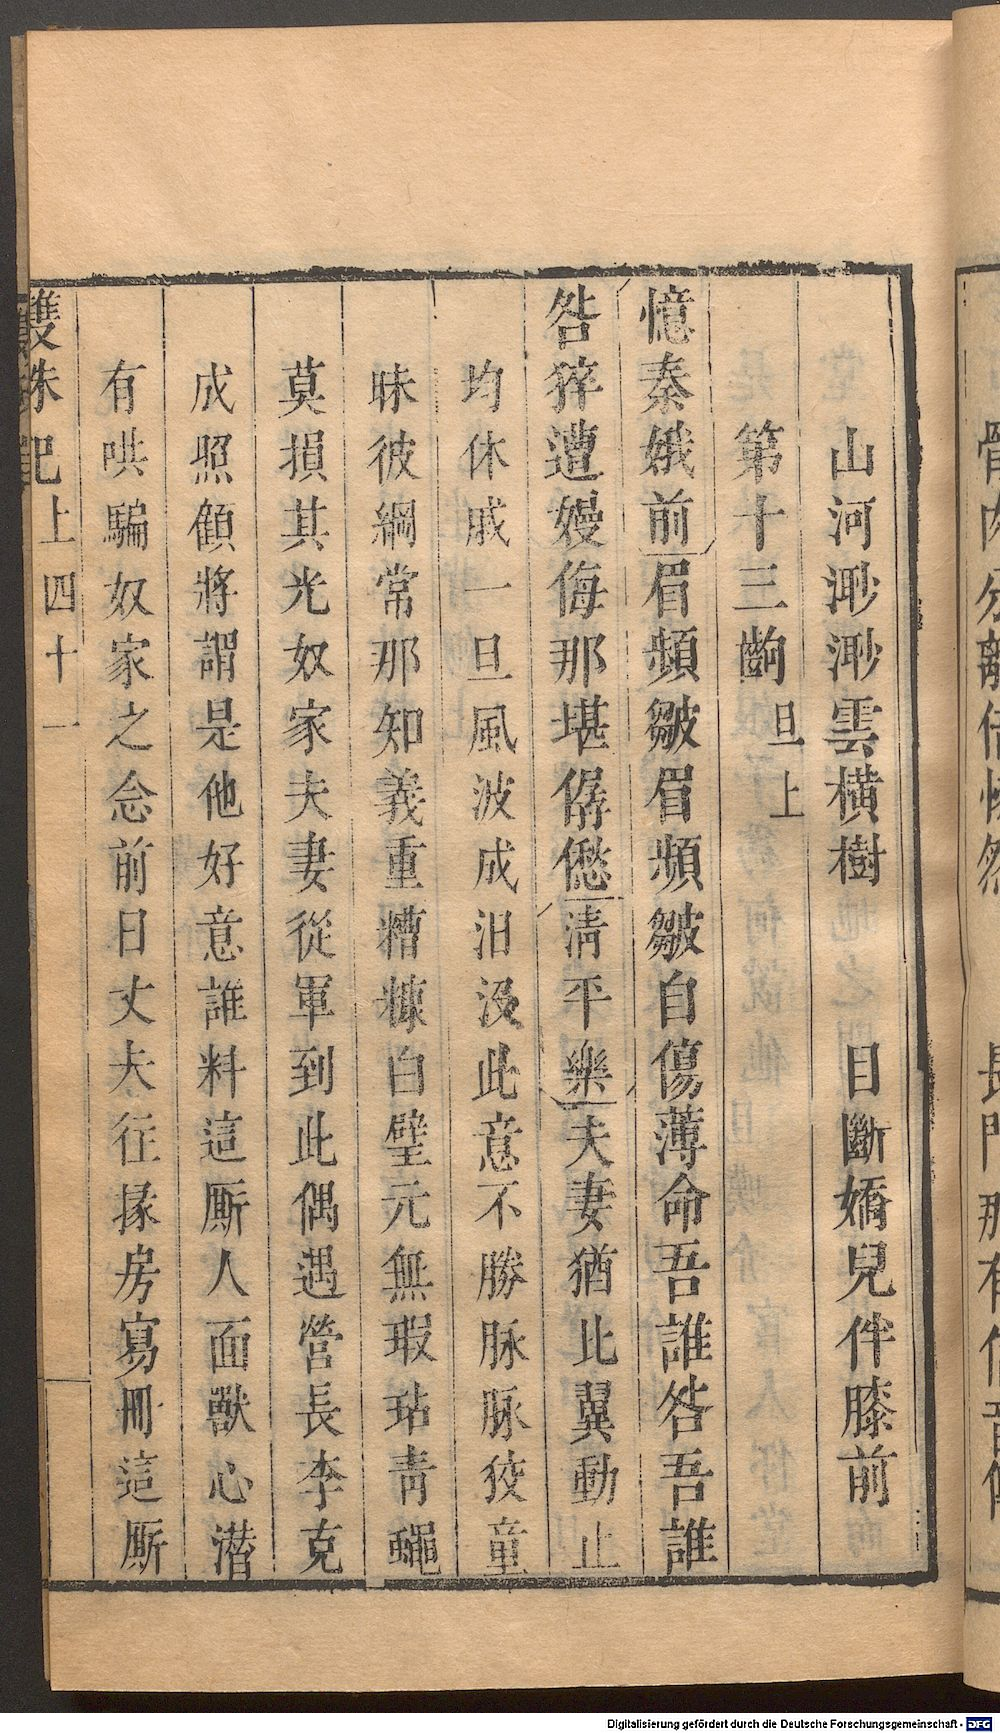 山河渺渺雲橫樹　目斷嬌兒伴膝前
第十三齣 旦上
憶秦娥前眉頻皺眉頻皺自傷薄命吾誰咎吾誰
咎猝遭嫚侮那堪僝僽清平樂夫妻猶比翼動止
均休戚一旦風波成汨沒此意不勝脉脉狡童
昧彼綱常那知義重糟糠白璧元無瑕玷青蠅
莫損其光奴家夫妻從軍到此偶遇營長李克
成照顧將謂是他好意誰料這厮人面獸心潜
有哄騙奴家之念前日丈夫往掾房寫冊這厮
雙珠記上 四十一
骨肉分離
長門那有信音傳
Digitalisierung gefördert durch die Deutsche Forschungsgemeinschaft - DFG